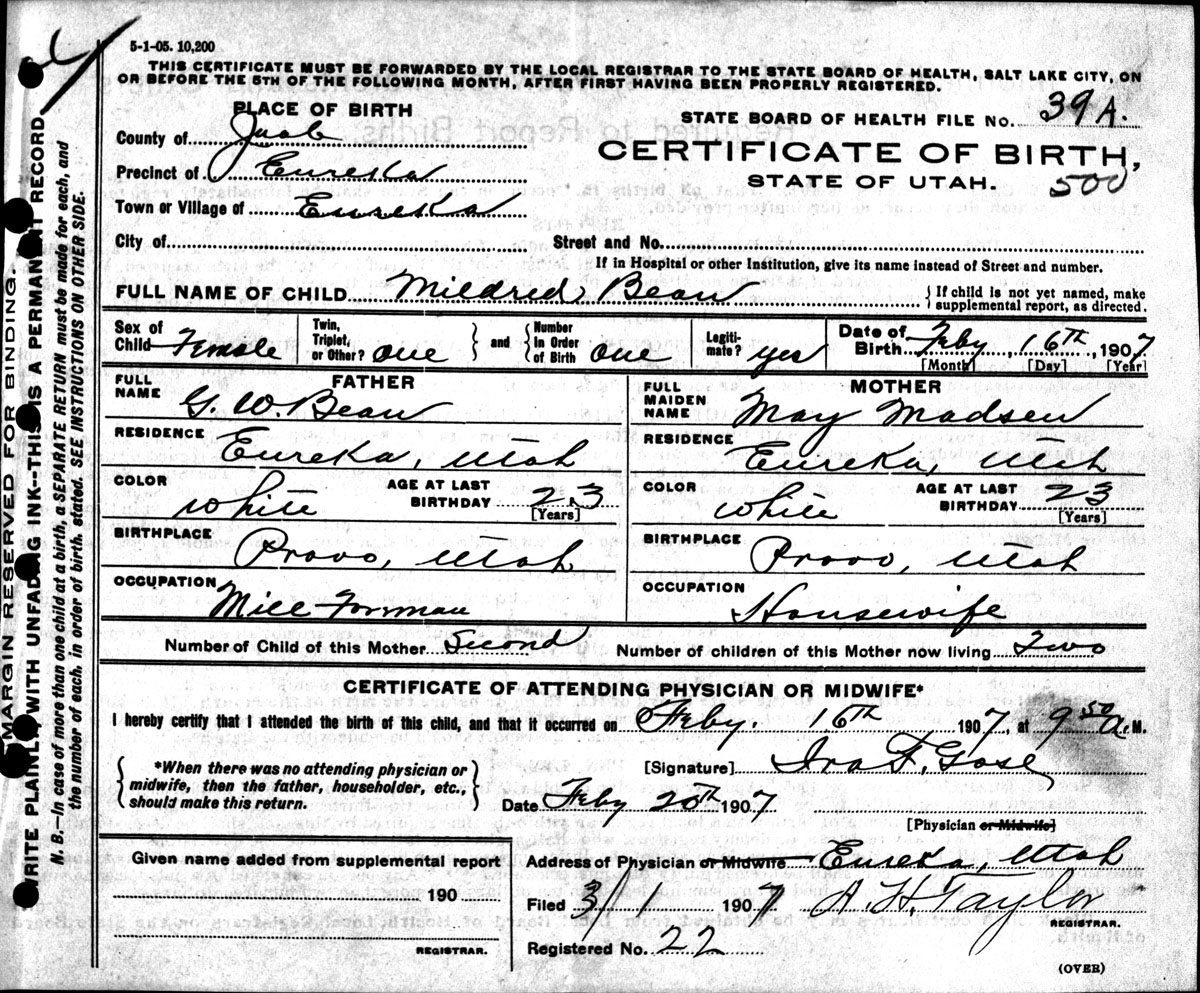 5-1-05. 10,200
THIS CERTIFICATE MUST BE FORWARDED BY THE LOCAL REGISTRAR TO THE STATE BOARD OF HEALTH, SALT LAKE CITY, ON
OR BEFORE THE 5TH OF THE FOLLOWING MONTH, AFTER FIRST HAVING BEEN PROPERLY REGISTERED.
PLACE OF BIRTH
STATE BOARD OF HEALTH FILE NO. 39A.
County of Juab
CERTIFICATE OF BIRTH,
Precinct of Eureka
STATE OF UTAH. 500
Town or Village of Eureka
City of Street and No.
If in Hospital or other Institution, give its name instead of Street and number.
FULL NAME OF CHILD Mildred Bean { If child is not yet named, make
supplemental report, as directed.
Sex of Child Female Twin, Triplet, or Other? one } and { Number in Order of Birth one Legiti-mate? yes Date of Birth Feby, 16th, 1907
[Month] [Day] [Year]
FATHER MOTHER
FULL NAME G. W. Bean FULL MAIDEN NAME May Madsen
RESIDENCE Eureka, Utah RESIDENCE Eureka, Utah
COLOR White AGE AT LAST BIRTHDAY 23 [Years] COLOR White AGE AT LAST BIRTHDAY 23 [Years]
BIRTHPLACE Provo, Utah BIRTHPLACE Provo, Utah
OCCUPATION Mill Forman OCCUPATION Housewife
Number of Child of this Mother Second Number of children of this Mother now living Two
CERTIFICATE OF ATTENDING PHYSICIAN OR MIDWIFE*
I hereby certify that I attended the birth of this child, and that it occurred on Feby. 16th 1907, at 9 50 A. M.
{ *When there was no attending physician or
midwife, then the father, householder, etc.,
should make this return. }
[Signature] Ira F.
Date Feby 20th 1907
[Physician or Midwife]
Given name added from supplemental report
190
REGISTRAR.
Address of Physician or Midwife Eureka, Utah
Filed 3/1 1907 A. H. Taylor
REGISTRAR.
Registered No. 22
(OVER)
MARGIN RESERVED FOR BINDING.
WRITE PLAINLY WITH UNFADING INK--THIS IS A PERMANENT RECORD
N. B.—In case of more than one child at a birth, a SEPARATE RETURN must be made for each, and
the number of each, in order of birth, stated. SEE INSTRUCTIONS ON OTHER SIDE.